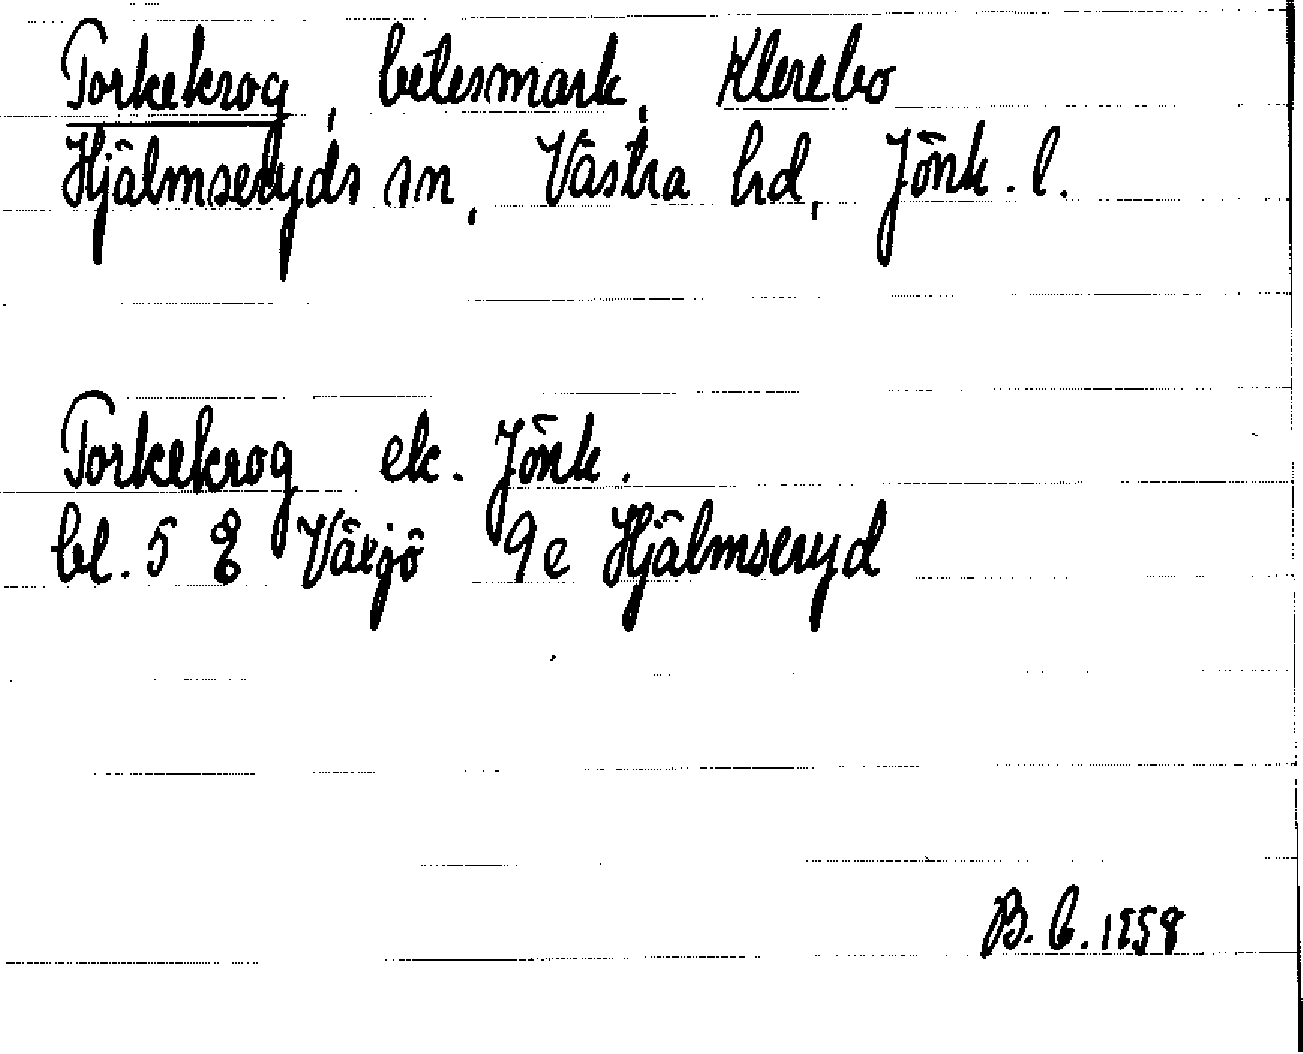 Torkekrog, betesmark, Klerebo
Hjälmseryds sn, Västra hd, Jönk. l.
Torkekrog ek. Jönk.
bl. 5 E Växjö 9e Hjälmseryd
B. C. 1958